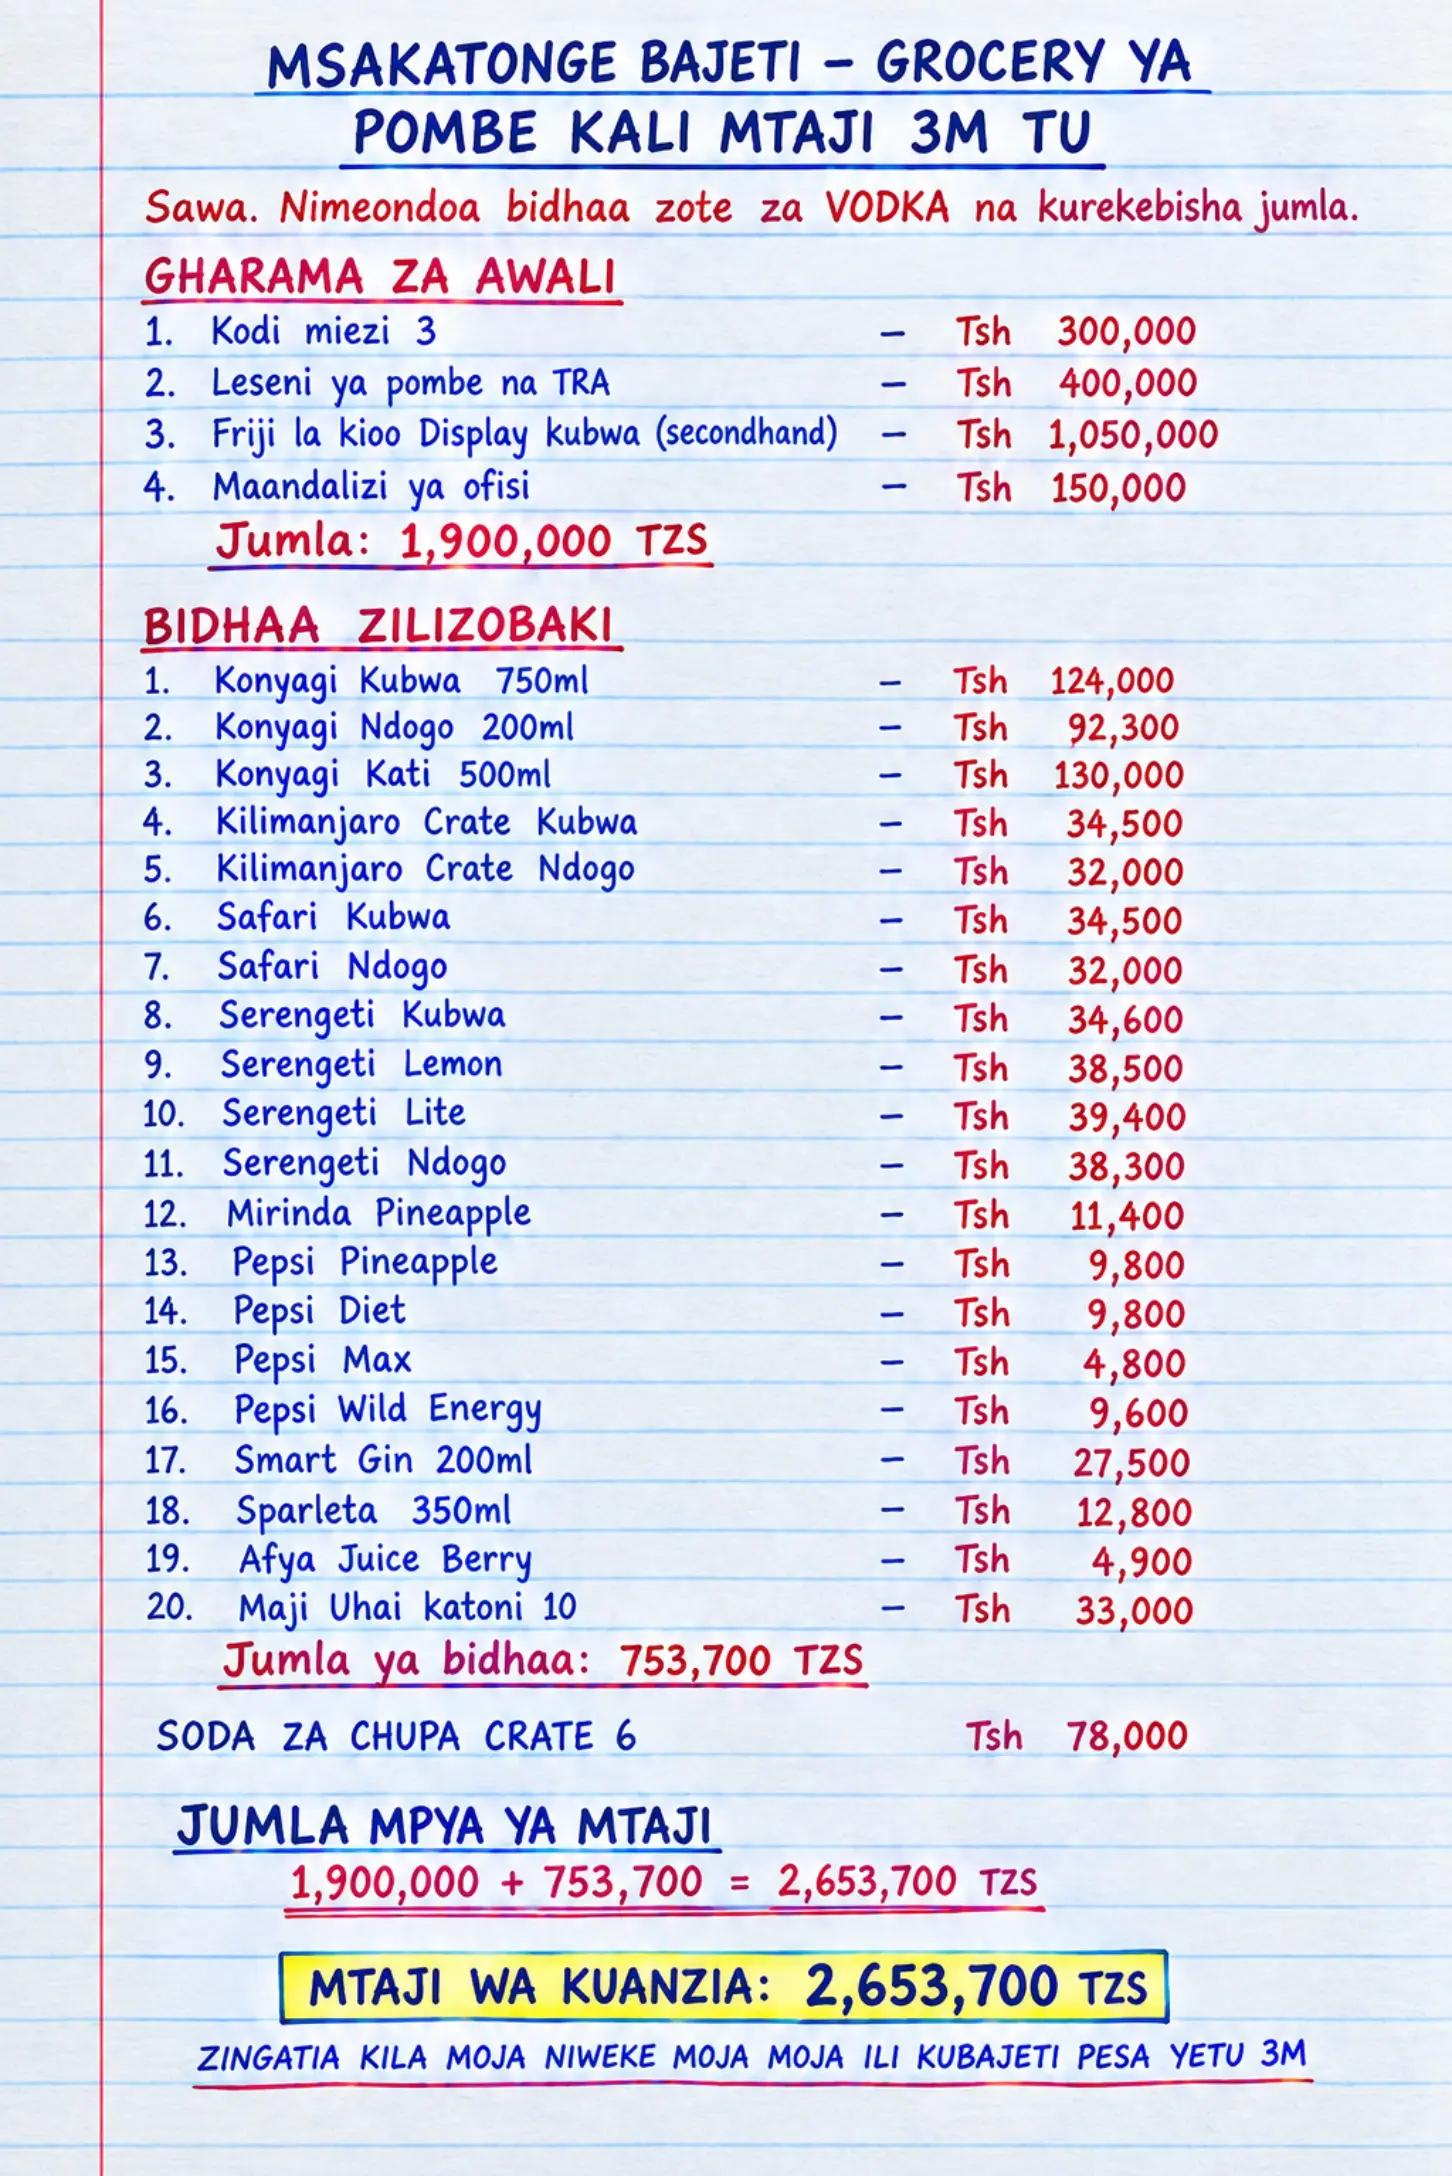 MSAKATONGE BAJETI – GROCERY YA
POMBE KALI MTAJI 3M TU
Sawa. Nimeondoa bidhaa zote za VODKA na kurekebisha jumla.
GHARAMA ZA AWALI
1. Kodi miezi 3 – Tsh 300,000
2. Leseni ya pombe na TRA – Tsh 400,000
3. Friji la kioo Display kubwa (secondhand) – Tsh 1,050,000
4. Maandalizi ya ofisi – Tsh 150,000
Jumla: 1,900,000 TZS
BIDHAA ZILIZOBAKI
1. Konyagi Kubwa 750ml – Tsh 124,000
2. Konyagi Ndogo 200ml – Tsh 92,300
3. Konyagi Kati 500ml – Tsh 130,000
4. Kilimanjaro Crate Kubwa – Tsh 34,500
5. Kilimanjaro Crate Ndogo – Tsh 32,000
6. Safari Kubwa – Tsh 34,500
7. Safari Ndogo – Tsh 32,000
8. Serengeti Kubwa – Tsh 34,600
9. Serengeti Lemon – Tsh 38,500
10. Serengeti Lite – Tsh 39,400
11. Serengeti Ndogo – Tsh 38,300
12. Mirinda Pineapple – Tsh 11,400
13. Pepsi Pineapple – Tsh 9,800
14. Pepsi Diet – Tsh 9,800
15. Pepsi Max – Tsh 4,800
16. Pepsi Wild Energy – Tsh 9,600
17. Smart Gin 200ml – Tsh 27,500
18. Sparleta 350ml – Tsh 12,800
19. Afya Juice Berry – Tsh 4,900
20. Maji Uhai katoni 10 – Tsh 33,000
Jumla ya bidhaa: 753,700 TZS
SODA ZA CHUPA CRATE 6 Tsh 78,000
JUMLA MPYA YA MTAJI
1,900,000 + 753,700 = 2,653,700 TZS
MTAJI WA KUANZIA: 2,653,700 TZS
ZINGATIA KILA MOJA NIWEKE MOJA MOJA ILI KUBAJETI PESA YETU 3M